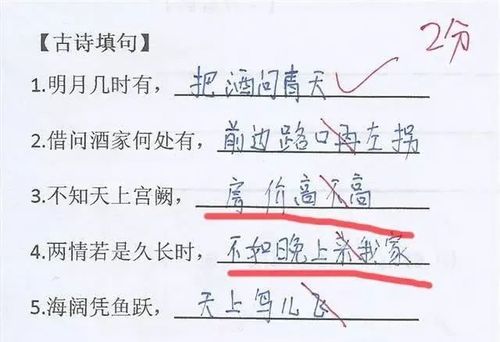 【古诗填句】 2分
1.明月几时有，把酒问青天
2.借问酒家何处有，前边路口再左拐
3.不知天上宫阙，房价高不高
4.两情若是久长时，不如晚上来我家
5.海阔凭鱼跃，天上鸟儿飞